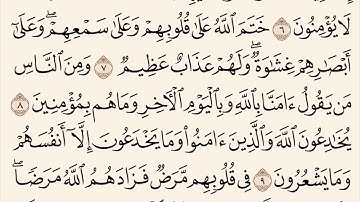 لَا يُؤْمِنُونَ ٦ خَتَمَ ٱللَّهُ عَلَىٰ قُلُوبِهِمْ وَعَلَىٰ سَمْعِهِمْ ۖ وَعَلَىٰٓ
أَبْصَـٰرِهِمْ غِشَـٰوَةٌ ۖ وَلَهُمْ عَذَابٌ عَظِيمٌ ٧ وَمِنَ ٱلنَّاسِ
مَن يَقُولُ ءَامَنَّا بِٱللَّهِ وَبِٱلْيَوْمِ ٱلْـَٔاخِرِ وَمَا هُم بِمُؤْمِنِينَ ٨
يُخَـٰدِعُونَ ٱللَّهَ وَٱلَّذِينَ ءَامَنُوا۟ وَمَا يَخْدَعُونَ إِلَّآ أَنفُسَهُمْ
وَمَا يَشْعُرُونَ ٩ فِى قُلُوبِهِم مَّرَضٌ فَزَادَهُمُ ٱللَّهُ مَرَضًا ۖ